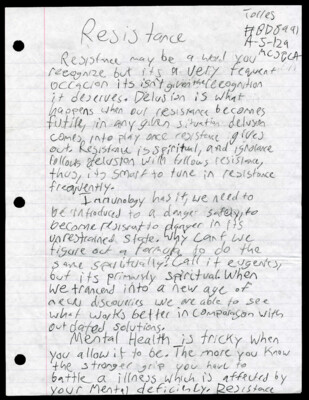 Torres
A-5-129
Resistance
Resistance may be a word you
recognize but its a very frequent
occacion its isn't given the recognition
it deserves. Delusion is what
happens when our resistance becomes
futile, in any given situation delusion
comes into play once resistance gives
out. Resistance is spiritual, and ignorance
follows delusion will follows resistance,
thus, its smart to tune in resistance
frequently.
Immunology has it, we need to
be introduced to a danger safely, to
become resistant to danger in its
unrestrained state. Why can't we
figure out a formula to do the
same spiritually? Call it eugenics,
but its primarly spiritual. When
we transend into a new age of
new discoveries we are able to see
what works better in comparison with
out dated solutions.
Mental Health is tricky when
you allow it to be. The more you know
the stronger grip you have to
battle a illness which is affected by
your mental deficienty. Resistance